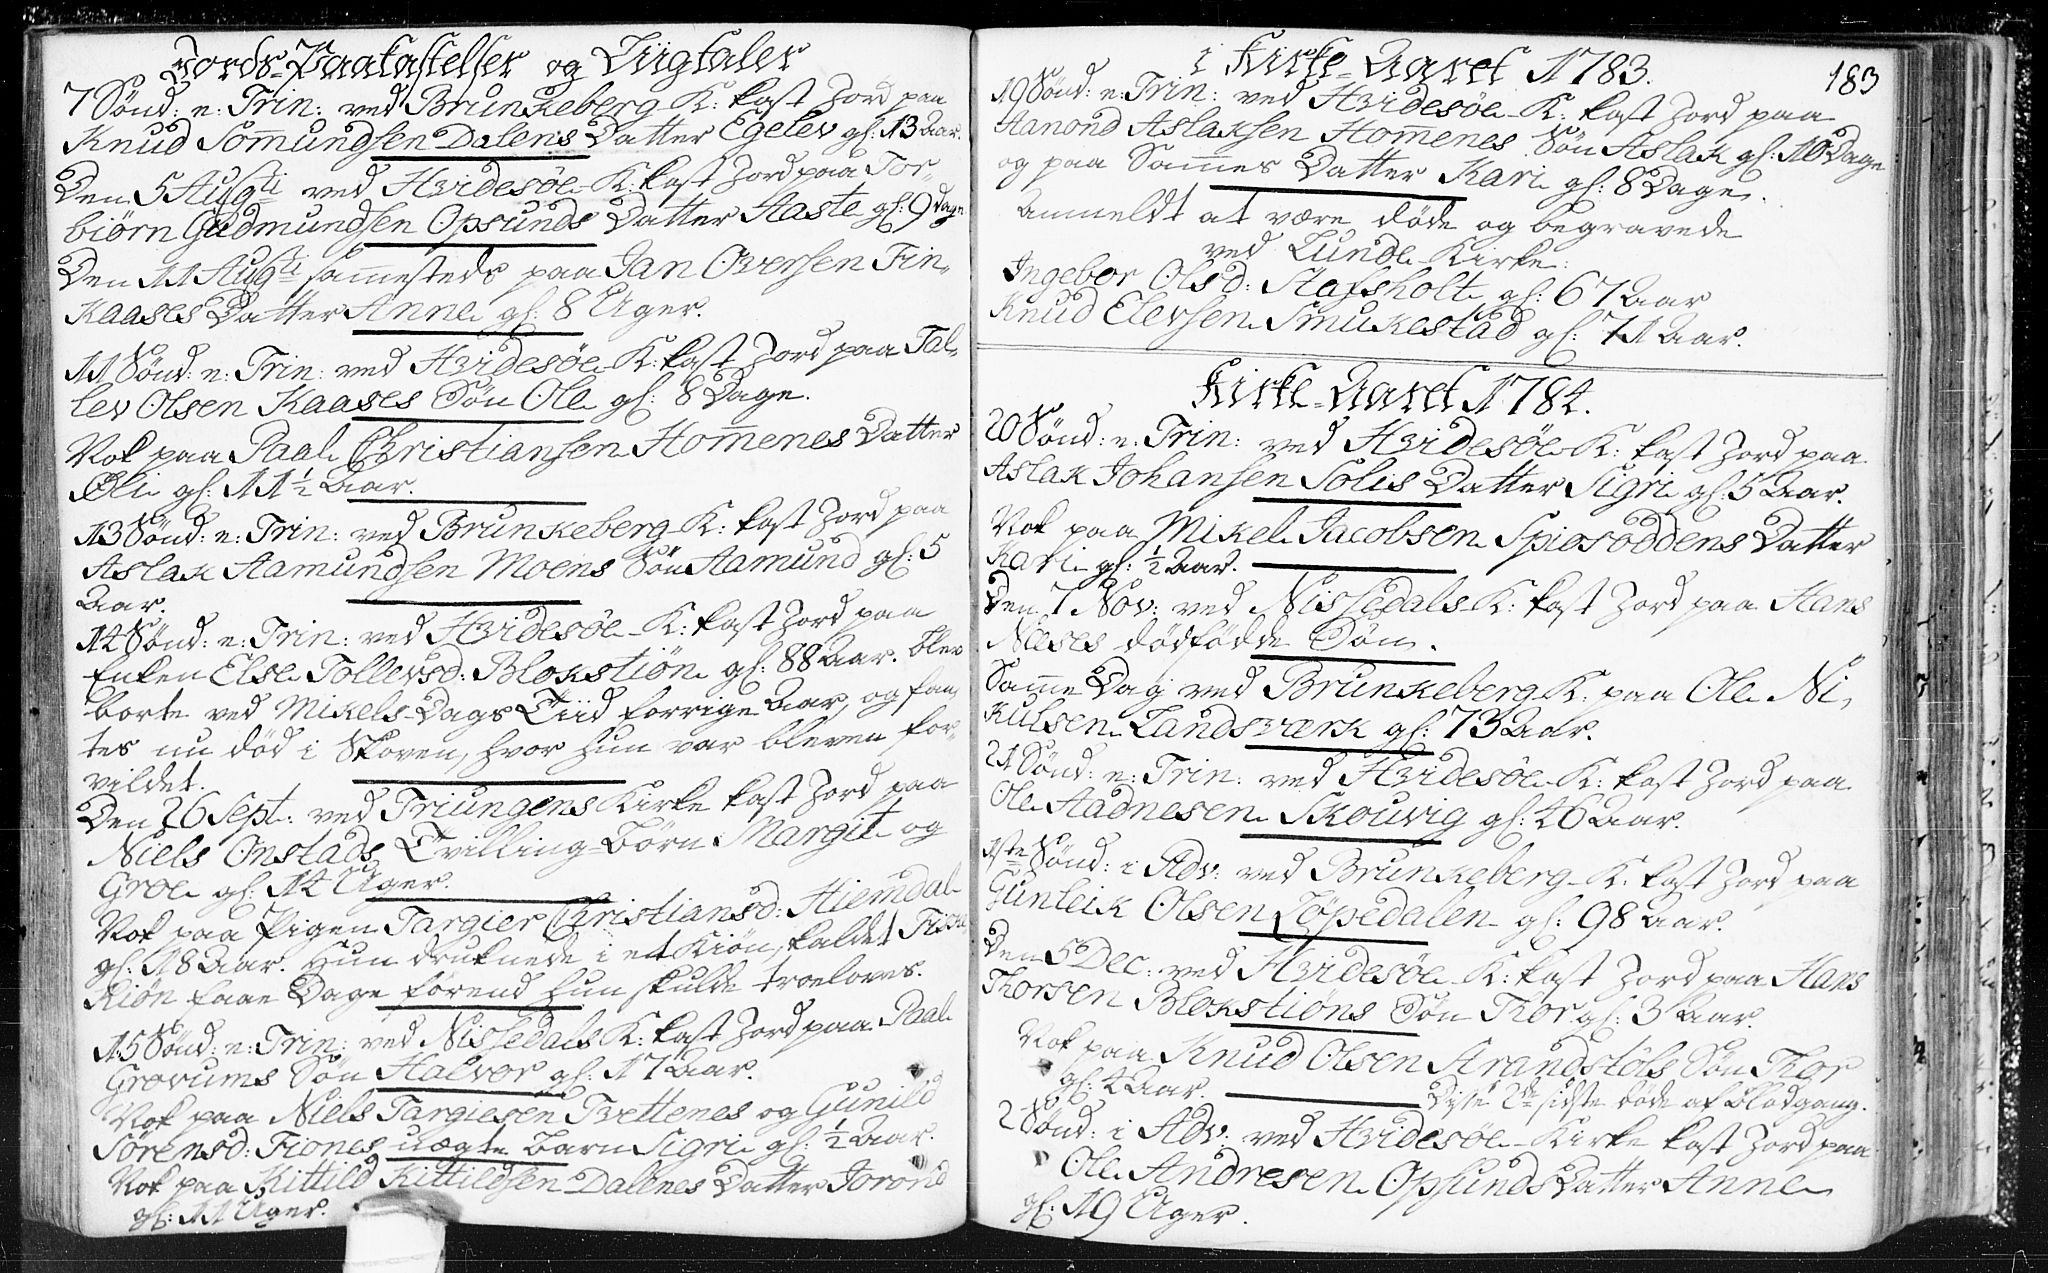 Jords-Paakastelser og Liigtaler
7 Sønd: e: Trin: ved Brunkeberg K: kast Jord paa
Knud Som̄undsen Dalens Datter Egelev gl: 13 Aar.
Den 5 Augti ved Hvidesøe K: kast Jord paa Tor-
biørn Gudmundsen Opsunds Datter Aaste gl: 9 dage
Den 11 Augti sam̄esteds paa Jan Oversen Fin-
kaases Datter Anne gl: 8 Uger.
11 Sønd: e: Trin: ved Hvidesøe K: kast Jord paa Tal-
lev Olsen Kaases Søn Ole gl: 8 Dage.
Nok paa Paal Christiansen Hom̄enes Datter
Øli gl: 11 ½ Aar.
13 Sønd: e: Trin: ved Brunkeberg K: kast Jord paa
Aslak Aamundsen Moens Søn Aamund gl: 5
Aar.
14 Sønd: e: Trin: ved Hvidesøe K: kast Jord paa
Enken Else Tollevsd: Blokstiøn gl: 88 Aar. blev
borte ved Mikels-Dags Tiid forrige Aar, og fan-
tes nu død i Skoven, hvor hun var bleven for-
vildet.
Den 26 Sept: ved Triungens Kirke kast Jord paa
Niels Onstads Tvilling-Børn Margit og
Groe gl: 14 Uger.
Nok paa Pigen Targier Christiansd: Hiemdal
gl: 18 Aar. Hun druknede i et Kiøn, kaldet
Kiøn faae Dage førend hun skulde troeloves.
15 Sønd: e: Trin: ved Nissedals K: kast Jord paa Paal
Grovums Søn Halvor gl: 17 Aar.
Nok paa Niels Targiesen Tvettenes og Gunild
Sørensd: Fiones uægte Barn Sigri gl: ½ Aar.
Nok paa Kittild Kittildsen Dalenes Datter Jorond
gl: 11 Uger.
i Kirke-Aaret 1783.
183
19 Sønd: e: Trin: ved Hvidesøe K: kast Jord paa
Aanond Aslaksen Homenes Søn Aslak gl: 10 Dage
og paa Sam̄es Datter Kari gl: 8 Dage.
Anmeldt at være døde og begravede
ved Lunde Kirke:
Ingebor Olsd: Stafsholt gl: 67 Aar
Knud Elevsen Smukestad gl: 71 Aar.
Kirke-Aaret 1784.
20 Sønd: e: Trin: ved Hvidesøe K: kast Jord paa
Aslak Johansen Solis Datter Sigri gl: 5 Aar.
Nok paa Mikel Jacobsen Spiosoddens Datter
Kari gl: ½ Aar.
Den 7 Nov: ved Nissedals K: kast Jord paa Hans
Neeses dødfødde Søn.
Sam̄e Dag ved Brunkeberg K: paa Ole Ni-
kulsen Landsværk gl: 73 Aar.
21 Sønd: e: Trin: ved Hvidesøe K: kast Jord paa
Ole Aadnesen Skouvig gl: 46 Aar.
1ste Sønd: i Adv: ved Brunkeberg K: kast Jord paa
Gunleik Olsen Løpedalen gl: 98 Aar.
Den 5 Dec: ved Hvidesøe K: kast Jord paa Hans
Thorsen Blokstiøns Søn Thor gl: 3 Aar.
Nok paa Knud Olsen Strandstøls Søn Thor
gl: 4 Aar.
Disse 2de sidste døde af Blodgang.
2 Sønd: i Adv: ved Hvidesøe Kirke kast Jord paa
Ole Andresen Opsunds Datter Anne
gl: 19 Uger.